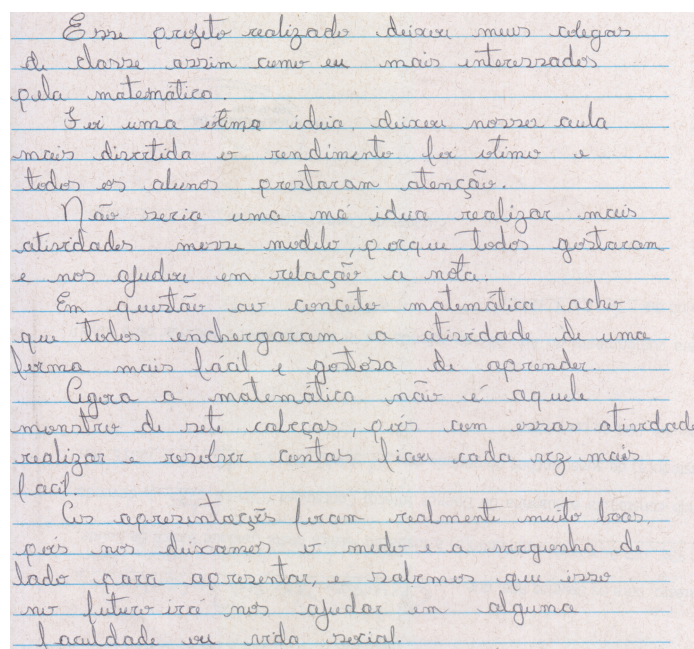 Esse projeto realizado deixou meus colegas
de classe assim como eu mais interessados
pela matemática.
Foi uma otima ideia, deixou nossa aula
mais divertida o rendimento foi otimo e
todos os alunos prestaram atenção.
Não seria uma má ideia realizar mais
atividades nesse modelo, porque todos gostaram
e nos ajudou em relação a nota.
Em questão ao conceito matemático acho
que todos enchergaram a atividade de uma
forma mais fácil e gostosa de aprender.
Agora a matemática não é aquele
monstro de sete cabeças, pois com essas atividade
realizar e resolver contas ficou cada vez mais
facil.
As apresentações foram realmente muito boas,
pois nos deixamos o medo e a vergonha de
lado para apresentar, e sabemos que isso
no futuro irá nos ajudar em alguma
faculdade ou vida social.